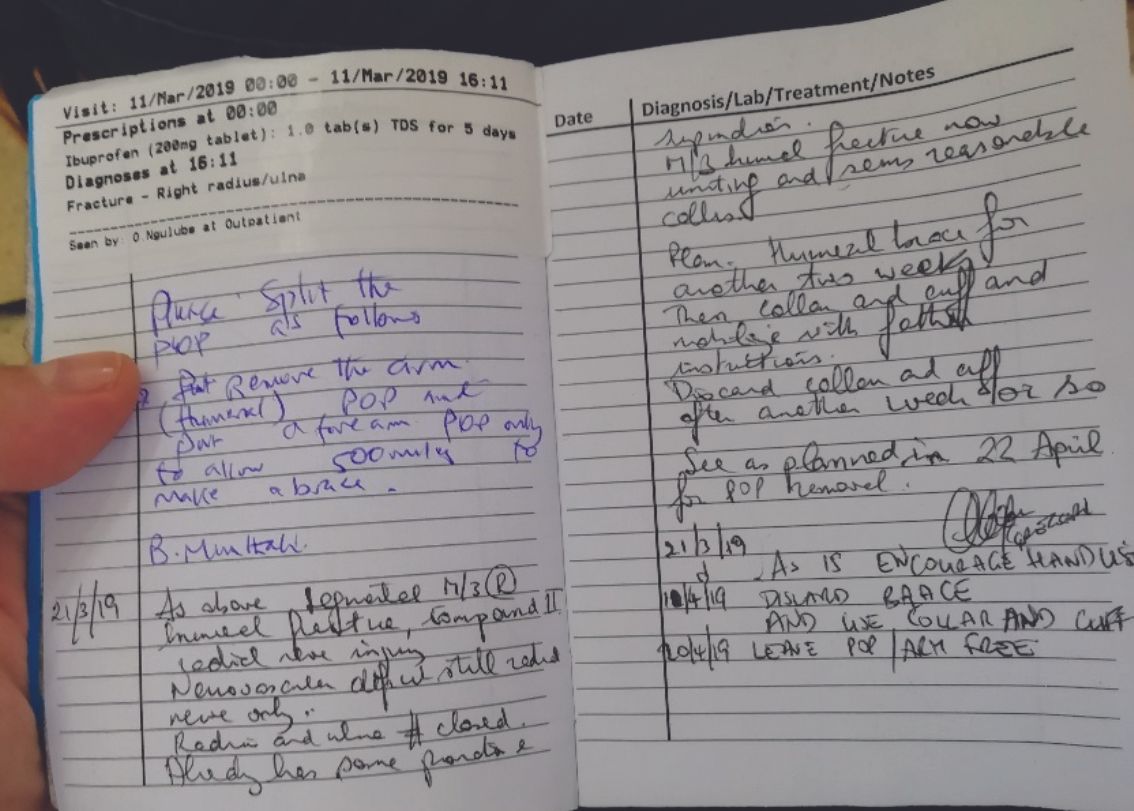 Visit: 11/Mar/2019 00:00 - 11/Mar/2019 16:11
Prescriptions at 00:00
Ibuprofen (200mg tablet): 1.0 tab(s) TDS for 5 days
Diagnoses at 16:11
Fracture - Right radius/ulna
Seen by: O.Ngulube at Outpatient
Split the
POP as follows
Remove the arm
(humeral) POP and
put a forearm POP only
to allow 500miles to
make a brace.
B.
21/3/19 As above M/3 (R)
humeral fracture, compound II
radial nerve injury
Neurovascular deficit still radial
nerve only.
Radius and ulna # closed.
Already has some
Date Diagnosis/Lab/Treatment/Notes
M/3 humeral fracture now
uniting and seems reasonable
Plan. Humeral brace for
another two weeks
Then collar and cuff and
mobilize with
instructions.
Discard collar and cuff
after another week or so
See as planned in 22 April
for POP removal.
21/3/19
AS IS ENCOURAGE HAND USE
10/4/19 DISCARD BRACE
AND USE COLLAR AND CUFF
20/4/19 LEAVE POP / ARM FREE